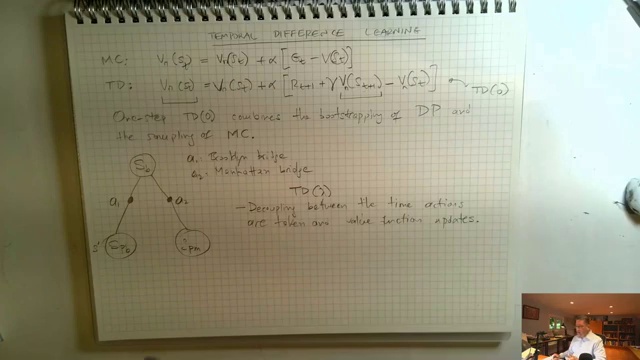 TEMPORAL DIFFERENCE LEARNING
MC: Vπ(St) = Vπ(St) + α [Gt − V(St)]
TD: Vπ(St) = Vπ(St) + α [Rt+1 + γ Vπ(St+1) − Vπ(St)] TD(0)
One-step TD(0) combines the bootstrapping of DP and
the sampling of MC.
a1: Brooklyn bridge
a2: Manhattan bridge
a1 a2
TD(λ)
- Decoupling between the time actions
are taken and value function updates.